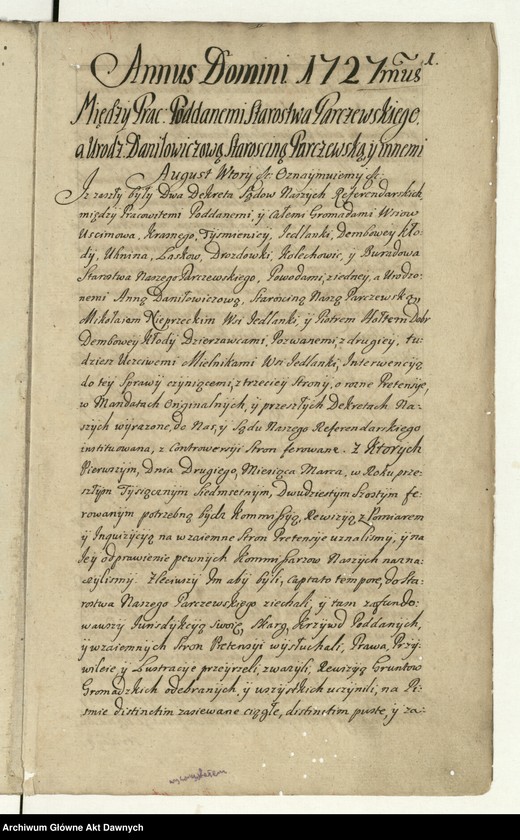 Annus Domini 1727mus 1.
Między Prac: Poddanemi Starostwa Parczewskiego,
a Urodz: Daniłowiczową Starosciną Parczewską, y innemi
August Wtory &c. Oznaymuiemy &c.
Iz zaszły były Dwa Dekreta Sądow Naszych Referendarskich,
między Pracowitemi Poddanemi, y całemi Gromadami Wsiow
Uscimowa, Krasnego, Tysmienicy, Iedlanki, Dembowey Kło-
dy, Uhnina, Laskow, Drozdowki, Kolechowic, y Buradowa
Starostwa Naszego Parczewskiego, Powodami, z iedney, a Urodzo-
nemi Anną Daniłowiczową, Starosciną Naszą Parczewską,
Mikołaiem Nieprzeckim Wsi Iedlanki, y Piotrem Holtem Dobr
Dembowey Kłody Dzierzawcami, Pozwanemi, z drugiey, tu-
dziesz Uczciwemi Mielnikami Wsi Iedlanki, Interwencyą
do tey Sprawy czyniącemi, z trzeciey Strony, o rozne Pretensye,
w Mandatach Originalnych, y przeszłych Dekretach Na-
szych wyrazone, do Nas, y Sądu Naszego Referendarskiego
instituowana, z Controwersyi Stron ferowane. Z Ktorych
Pierwszym, Dnia Drugiego, Miesiąca Marca, w Roku prze-
szłym Tysiącznym Siedmsetnym, Dwudziestym Szostym fe-
rowanym potrzebną Sądz Kommissyą, Rewizyą z Pomiarem
y Inquizycyą na wzaiemne Stron Pretensye uznalismy, y na
Iey odprawienie pewnych Kommissarzow Naszych nazna-
czylismy: zleciwszy Im aby byli, captato tempore, do Sta-
rostwa Naszego Parczewskiego ziechali, y tam zafundo-
wawszy Iurisdykcyą swoię, skarg, Krzywd Poddanych,
y wzaiemnych Stron Pretensyi wysłuchali, Prawa, Przy-
wileie y Lustracye przeyrseli, zwazyli, Rewizyą Gruntow
Gromadzkich odebranych, y wszystkich uczynili, na Pi-
smie distinctim zasiewane ciągłe, distinctim puste, y za-
Archiwum Główne Akt Dawnych